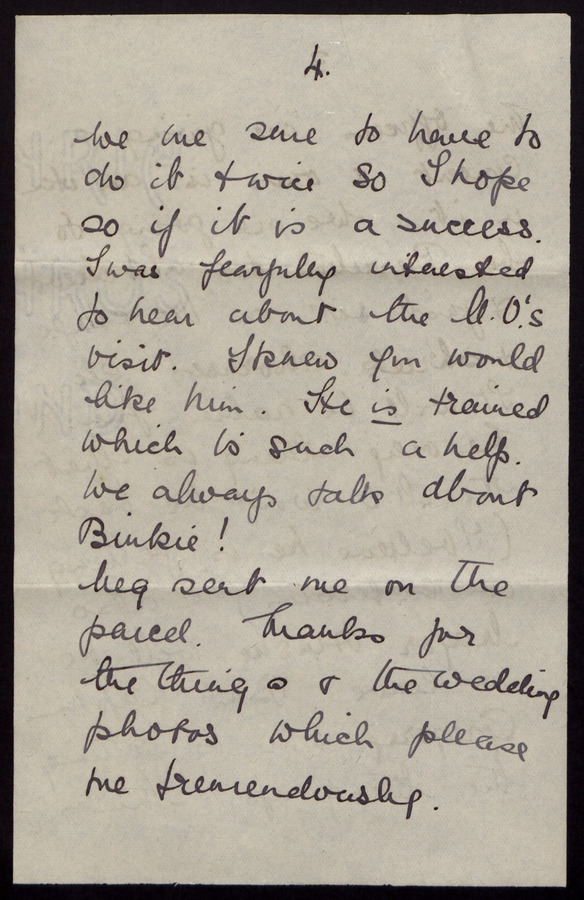 4.
We are sure to have to
do it twice so I hope
so if it is a success.
I was fearfully interested
to hear about the M.O.'s
visit. I knew you would
like him. He is trained
which is such a help.
We always talk about
Binkie!
Meg sent me on the
parcel. Thanks for
the things & the wedding
photos which please
me tremendously.